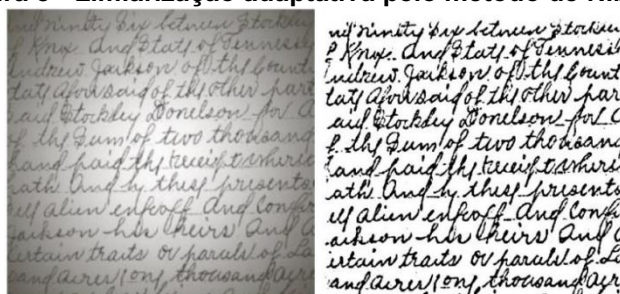 Limiarização adaptativa pelo método de
and ninety six between Stockley
Knox and State of Tennessee
Andrew Jackson of the Count
tate aforesaid of the other part
said Stockley Donelson for a
of the Sum of two thousand
hand paid the receipt whereof
hath And by these presents
ell alien enfeoff And Confir
Jackson his heirs And
certain traits or parcels of La
and acres one thousand acre
ninety six between Stockley
Knox And State of Tennessee
Andrew Jackson of the Count
tate aforesaid of the other par
aid Stockley Donelson for
of the Sum of two thousan
hand paid the receipt
ath And by these presents
ell alien enfeoff And Conf
ackson his heirs And
ertain traits or parcels of La
and acres one thousand acr